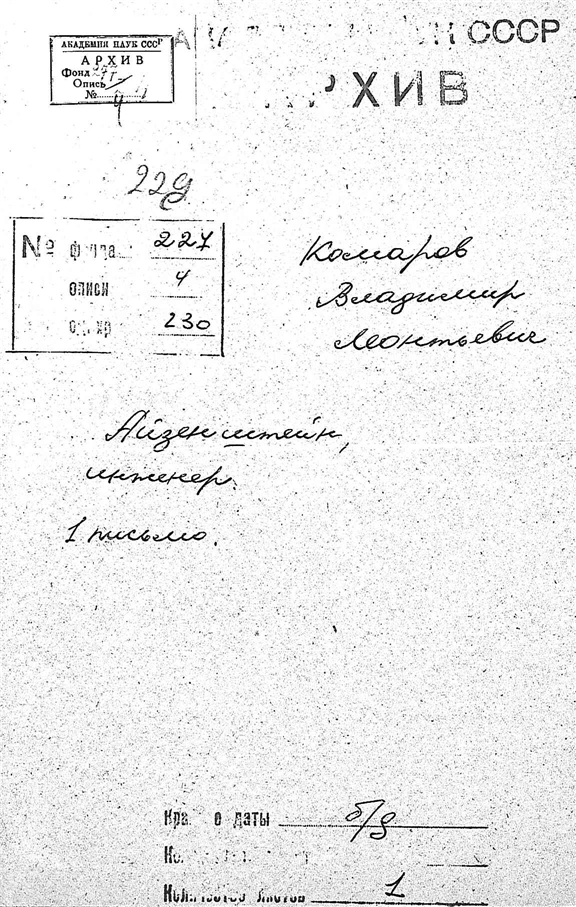 АКАДЕМИЯ НАУК СССР
АРХИВ
Фонд 277
Опись
№ 4
СССР
АРХИВ
229
№ фонда 227
описи 4
ед. хр 230
Комаров
Владимир
Леонтьевич
Айзенштейн,
инженер.
1 письмо.
Крайние даты б/д
Количество листов 1